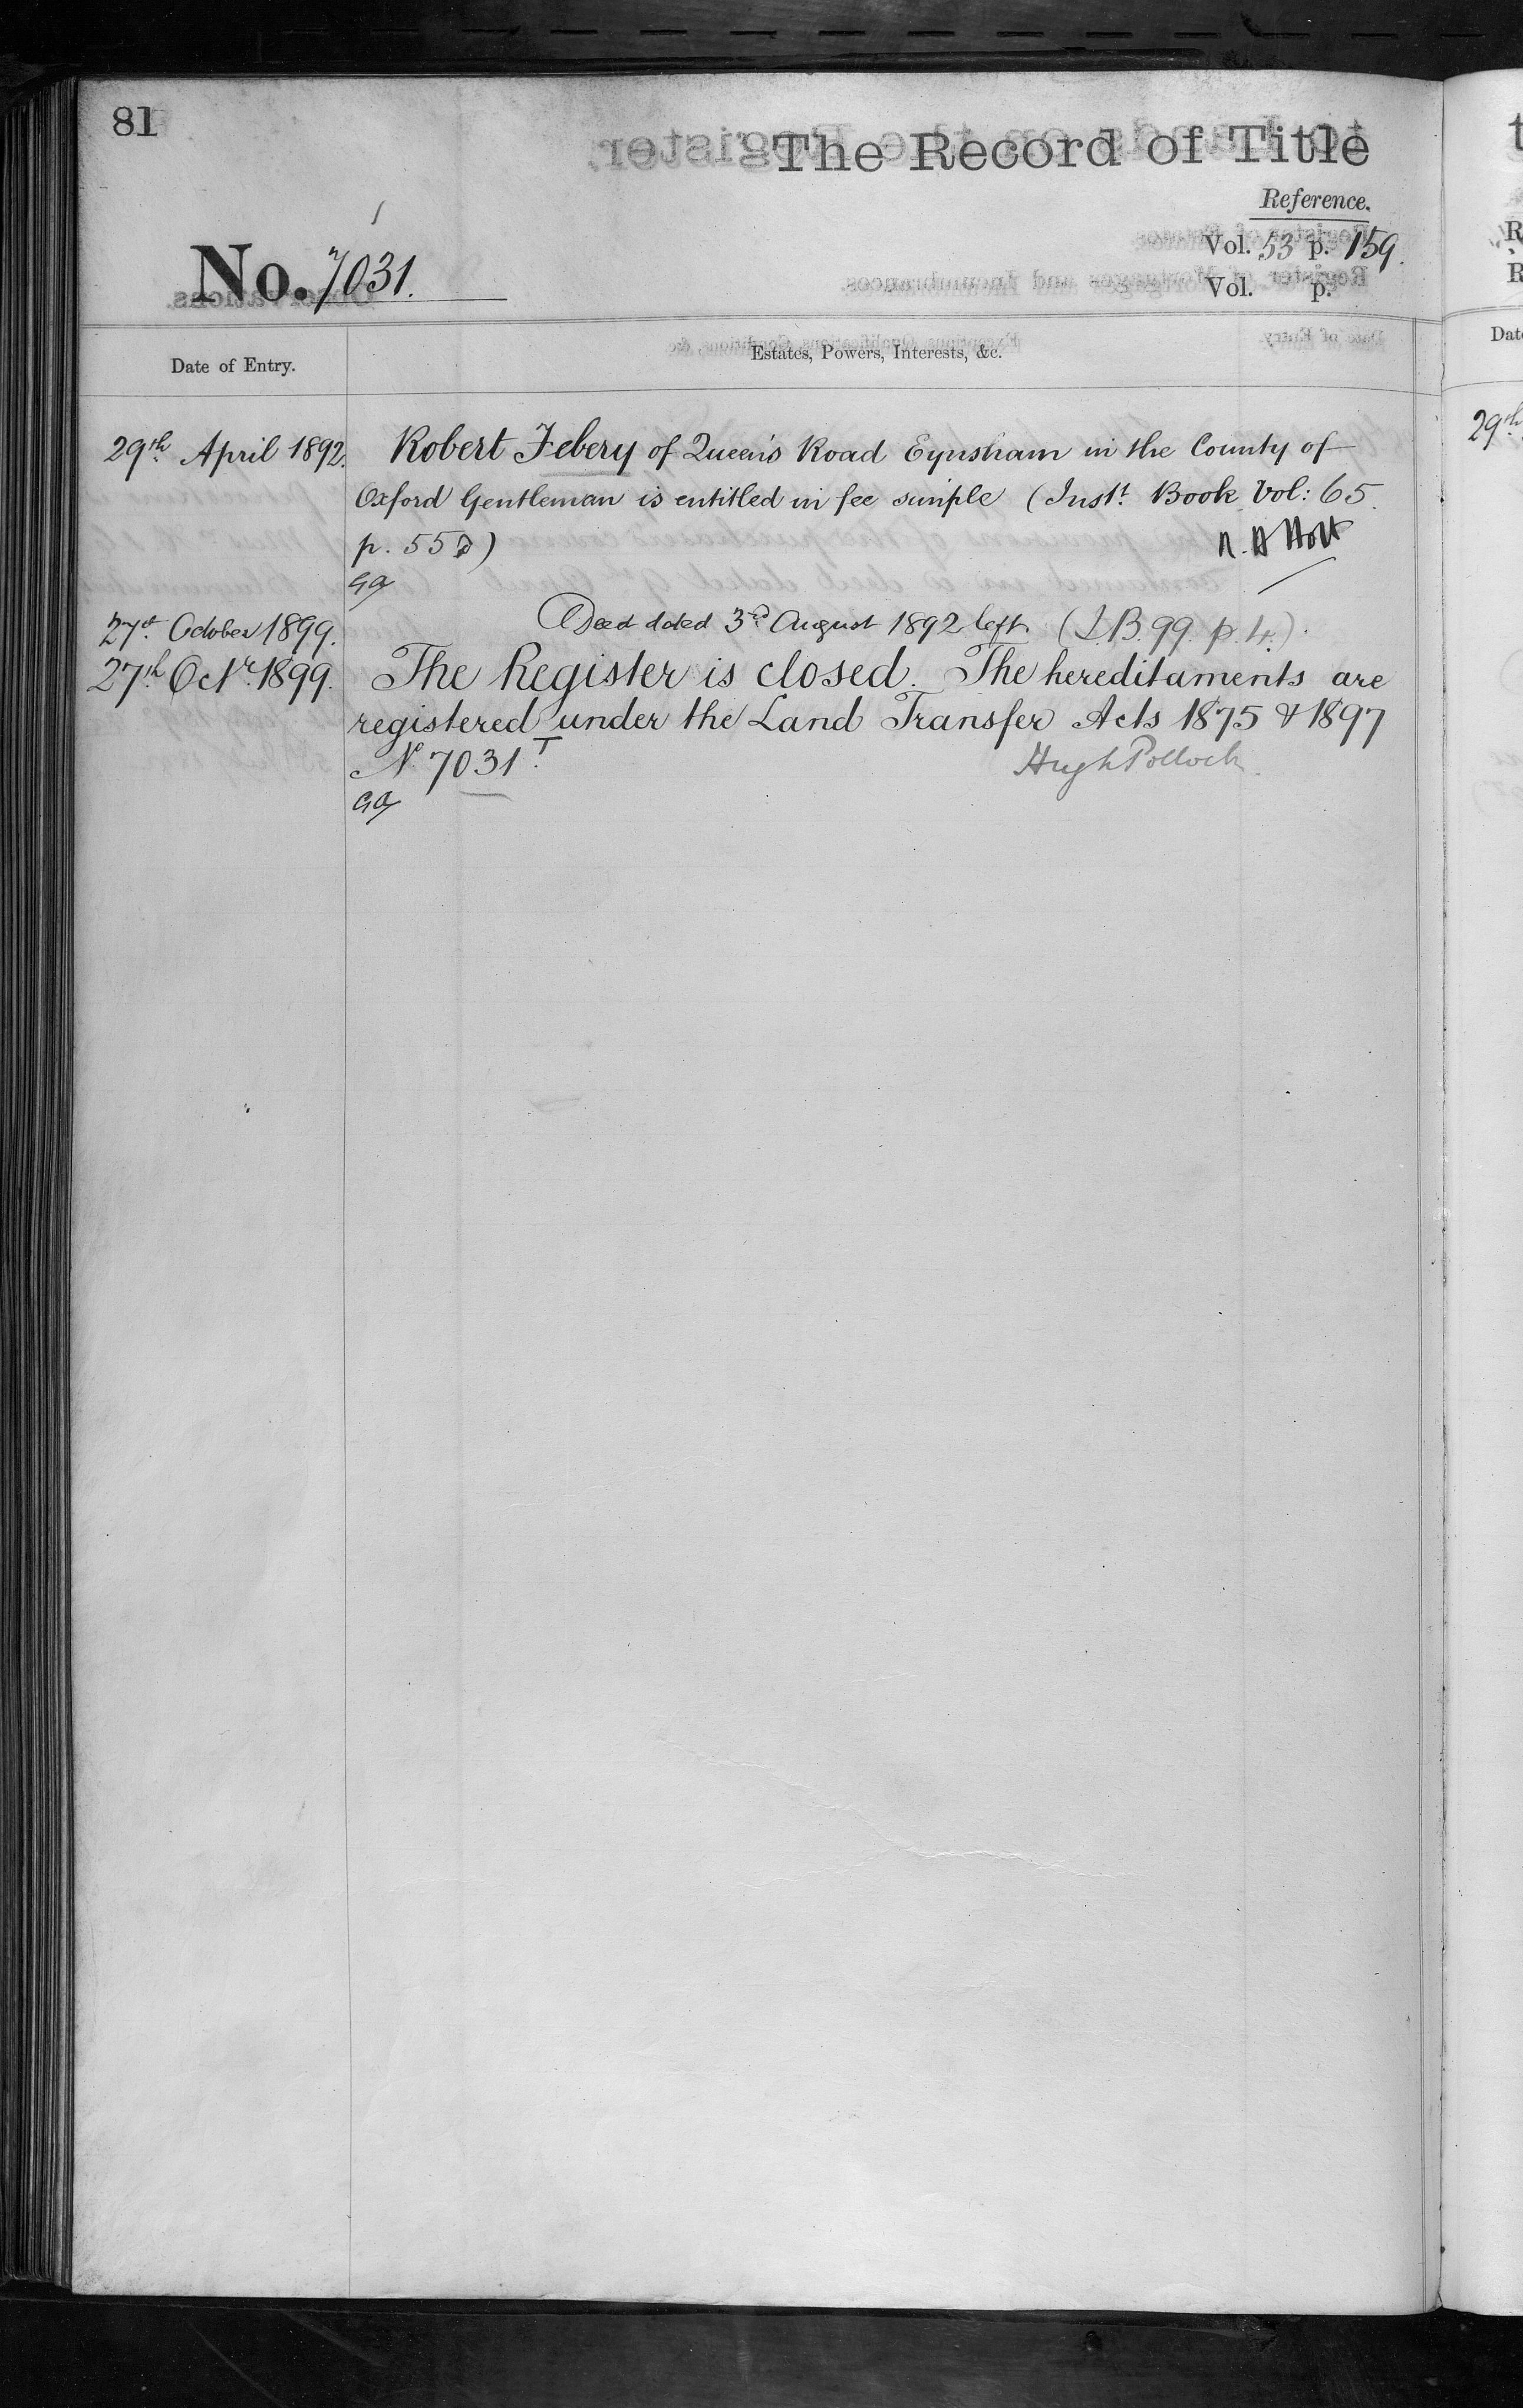 81
The Record of Title
Reference.
No. 7031.
Vol. 53 p. 159.
Vol. p.
Date of Entry.
Estates, Powers, Interests, &c.
29th April 1892. Robert Febery of Queen's Road Eynsham in the County of
Oxford Gentleman is entitled in fee simple (Inst. Book Vol: 65
p. 55
27th October 1899. Deed dated 3rd August 1892 left. (I.B. 99. p. 4.)
27th Octr. 1899. The Register is closed. The hereditaments are
registered under the Land Transfer Acts 1875 & 1897
No. 7031 T. Hugh Pollock
Dat
29th